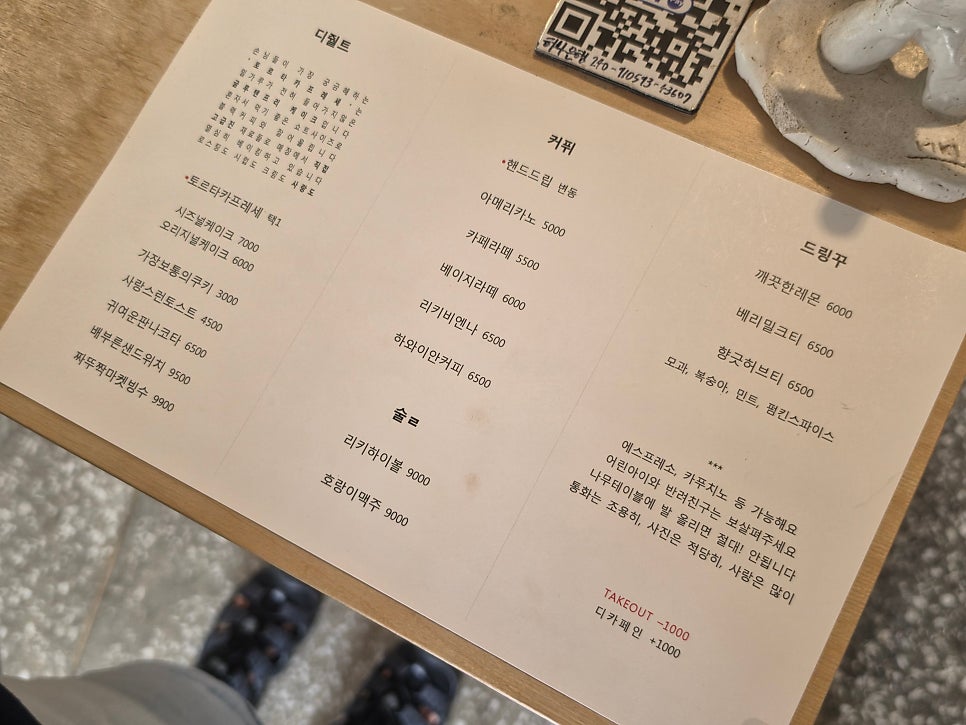 디줠트
손님들이 가장 궁금해하는
'토르타카프레세'는
밀가루가 전혀 들어가지않은
글루텐프리 케이크입니다
혼자서 먹기 좋은 쇼트사이즈로
블랙커피와 잘 어울립니다
고급진 재료들로 매장에서 직접
열심히 베이킹하고 있습니다
로스팅도 시럽도 크림도 사랑도
*토르타카프레세 택1
시즈널케이크 7000
오리지널케이크 6000
가장보통의쿠키 3000
사랑스런토스트 4500
귀여운판나코타 6500
배부른샌드위치 9500
짜뚜짝마켓빙수 9900
커퓌
*핸드드립 변동
아메리카노 5000
카페라떼 5500
베이지라떼 6000
리키비엔나 6500
하와이안커피 6500
술ㄹ
리키하이볼 9000
호랑이맥주 9000
드링꾸
깨끗한레몬 6000
베리밀크티 6500
향긋허브티 6500
모과, 복숭아, 민트, 펌킨스파이스
***
에스프레소, 카푸지노 등 가능해요
어린아이와 반려친구는 보살펴주세요
나무테이블에 발 올리면 절대! 안됩니다
통화는 조용히, 사진은 적당히, 사랑은 많이
TAKEOUT -1000
디카페인 +1000